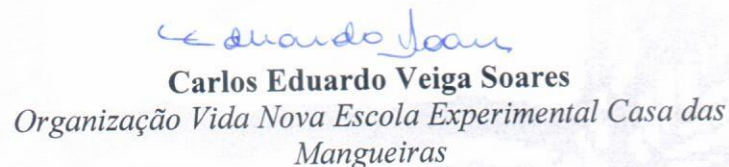 Eduardo Soares
Carlos Eduardo Veiga Soares
Organização Vida Nova Escola Experimental Casa das
Mangueiras